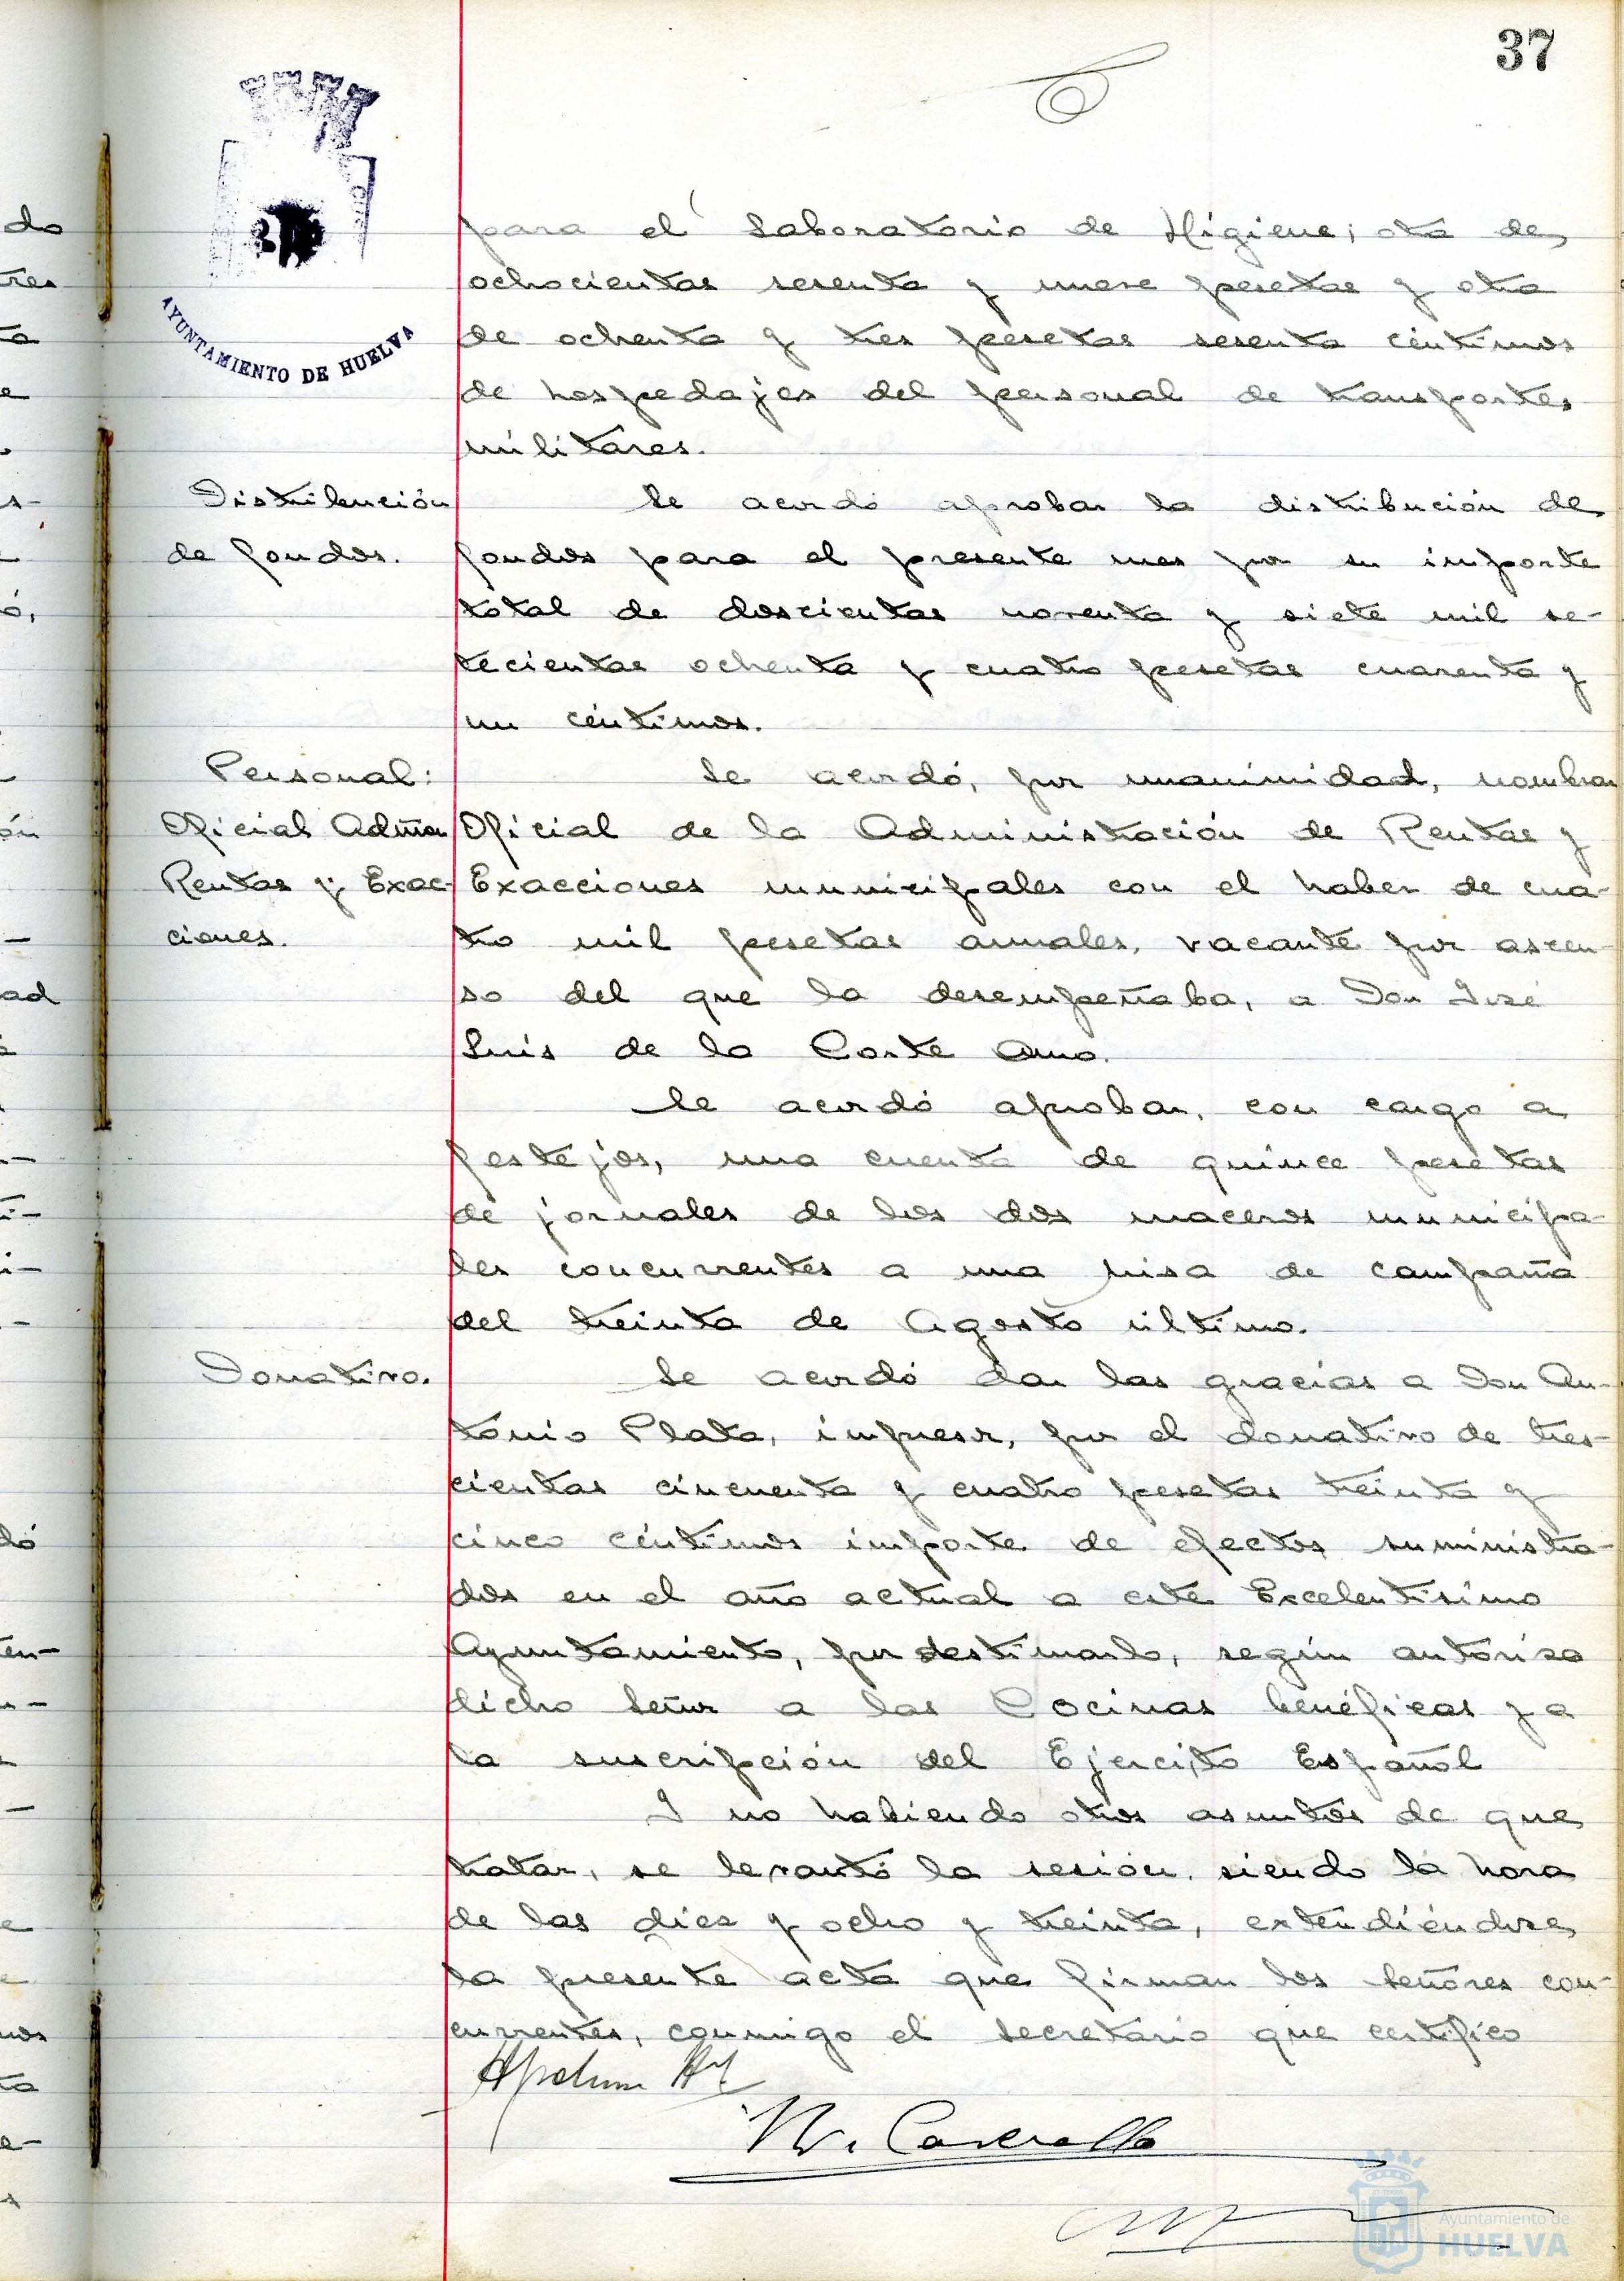 37
AYUNTAMIENTO DE HUELVA
para el Laboratorio de Higiene; otra de
ochocientas sesenta y nueve pesetas y otra
de ochenta y tres pesetas sesenta céntimos
de hospedajes del personal de transportes
militares.
Distribución
de fondos.
Se acordó aprobar la distribución de
fondos para el presente mes por su importe
total de doscientas noventa y siete mil se-
tecientas ochenta y cuatro pesetas cuarenta y
un céntimos.
Personal:
Oficial Admón
Rentas y Exac-
ciones.
Se acordó, por unanimidad, nombrar
Oficial de la Administración de Rentas y
Exacciones municipales con el haber de cua-
tro mil pesetas anuales, vacante por ascen-
so del que la desempeñaba, a Don José
Luis de la Corte
Se acordó aprobar, con cargo a
festejos, una cuenta de quince pesetas
de jornales de los dos maceros municipa-
les concurrentes a una misa de campaña
del treinta de Agosto último.
Donativo.
Se acordó dar las gracias a Don An-
tonio Plata, impresor, por el donativo de tres-
cientas cincuenta y cuatro pesetas treinta y
cinco céntimos importe de efectos suministra-
dos en el año actual a este Excelentísimo
Ayuntamiento, por destinarlo, según autoriza
dicho Señor a las Cocinas benéficas y a
la suscripción del Ejercito Español
Y no habiendo otros asuntos de que
tratar, se levantó la sesión, siendo la hora
de las diez y ocho y treinta, extendiéndose
la presente acta que firman los Señores con-
currentes, conmigo el secretario que certifico
Ayuntamiento de
HUELVA